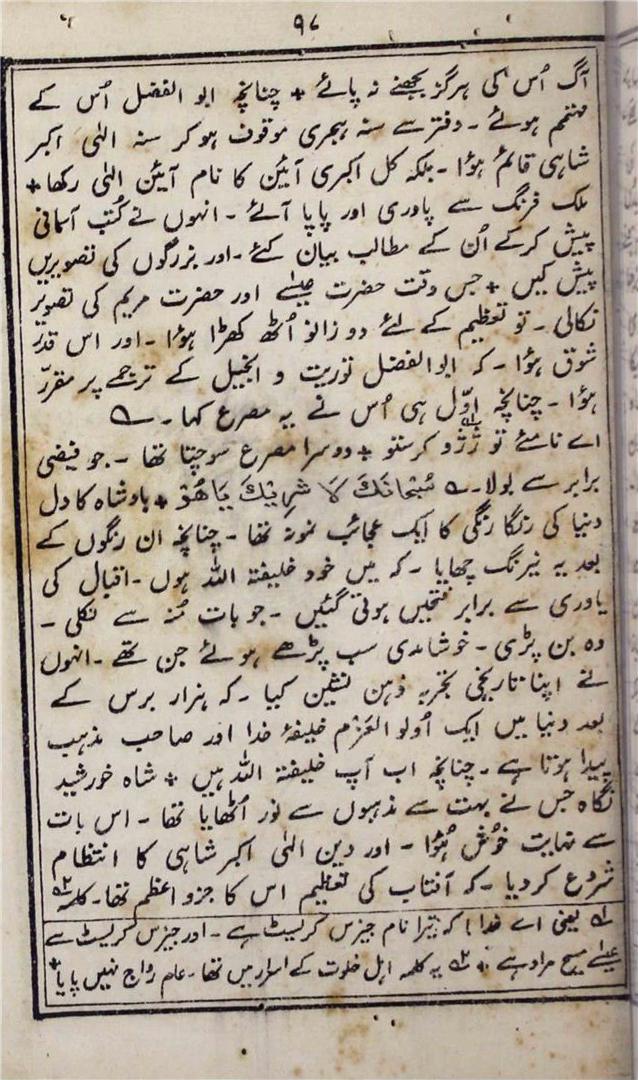 ۹۸
آگ اُس کی ہرگز بجھنے نہ پائے + چنانچہ ابو الفضل اُس کے
مہتمم ہوئے ۔ دفتر سے سنہ ہجری موقوف ہوکر سنہ الٰہی اکبر
شاہی قائم ہؤا ۔ بلکہ کل اکبری آئین کا نام آیئن الٰہی رکھا +
ملک فرنگ سے پادری اور پاپا آئے ۔ انہوں نے کُتب آسمانی
پیش کرکے اُن کے مطالب بیان کئے ۔ اور بزرگوں کی تصویریں
پیش کیں + جس وقت حضرت عیسٰے اور حضرت مریم کی تصویر
نکالی ۔ تو تعظیم کے لئے دو زانو اُٹھ کھڑا ہؤا ۔ اور اس قدر
شوق ہؤا ۔ کہ ابو الفضل توریت و انجیل کے ترجمے پر مقرّر
ہؤا ۔ چنانچہ اوّل ہی اُس نے یہ مصرع کہا ۔ ؎
اے نامئے تو ژژو کرستو + دوسرا مصرع سوچتا تھا ۔ جو فیضی
برابر سے بولا ۔ ؎ سُبْحَانَكَ لَا شَرِيْكَ يَاهُوْ + بادشاہ کا دل
دنیا کی رنگا رنگی کا ایک عجائب نمونہ تھا ۔ چنانچہ ان رنگوں کے
بعد یہ نیرنگ چھایا ۔ کہ میں خود خلیفۃ اللہ ہوں ۔ اقبال کی
یاوری سے برابر فتحیں ہوتی گئیں ۔ جو بات مُنہ سے نکلی ۔
وہ بن پڑی ۔ خوشامدی سب پڑھے ہوئے جن تھے ۔ انہوں
نے اپنا تاریخی تجربہ ذہن نشین کیا ۔ کہ ہزار برس کے
بعد دنیا میں ایک اُولو العَزْم خلیفۂ خدا اور صاحب مذہب
پیدا ہوتا ہے ۔ چنانچہ اب آپ خلیفۃ اللہ ہیں + شاہ خورشید
نگاہ جس نے بہت سے مذہبوں سے نور اُٹھایا تھا ۔ اس بات
سے نہایت خُوش ہُؤا ۔ اور دین الٰہی اکبر شاہی کا انتظام
شروع کردیا ۔ کہ آفتاب کی تعظیم اس کا جزو اعظم تھا ۔ کلمہ ۲؎
۱؎ یعنی اے خدا ! کہ تیرا نام جیزس کریسٹ ہے ۔ اور جیزس کریسٹ سے
عیسٰے مسیح مراد ہے + ۲؎ یہ کلمہ اہل خلوت کے اسرار میں تھا ۔ عام رواج نہیں پایا +